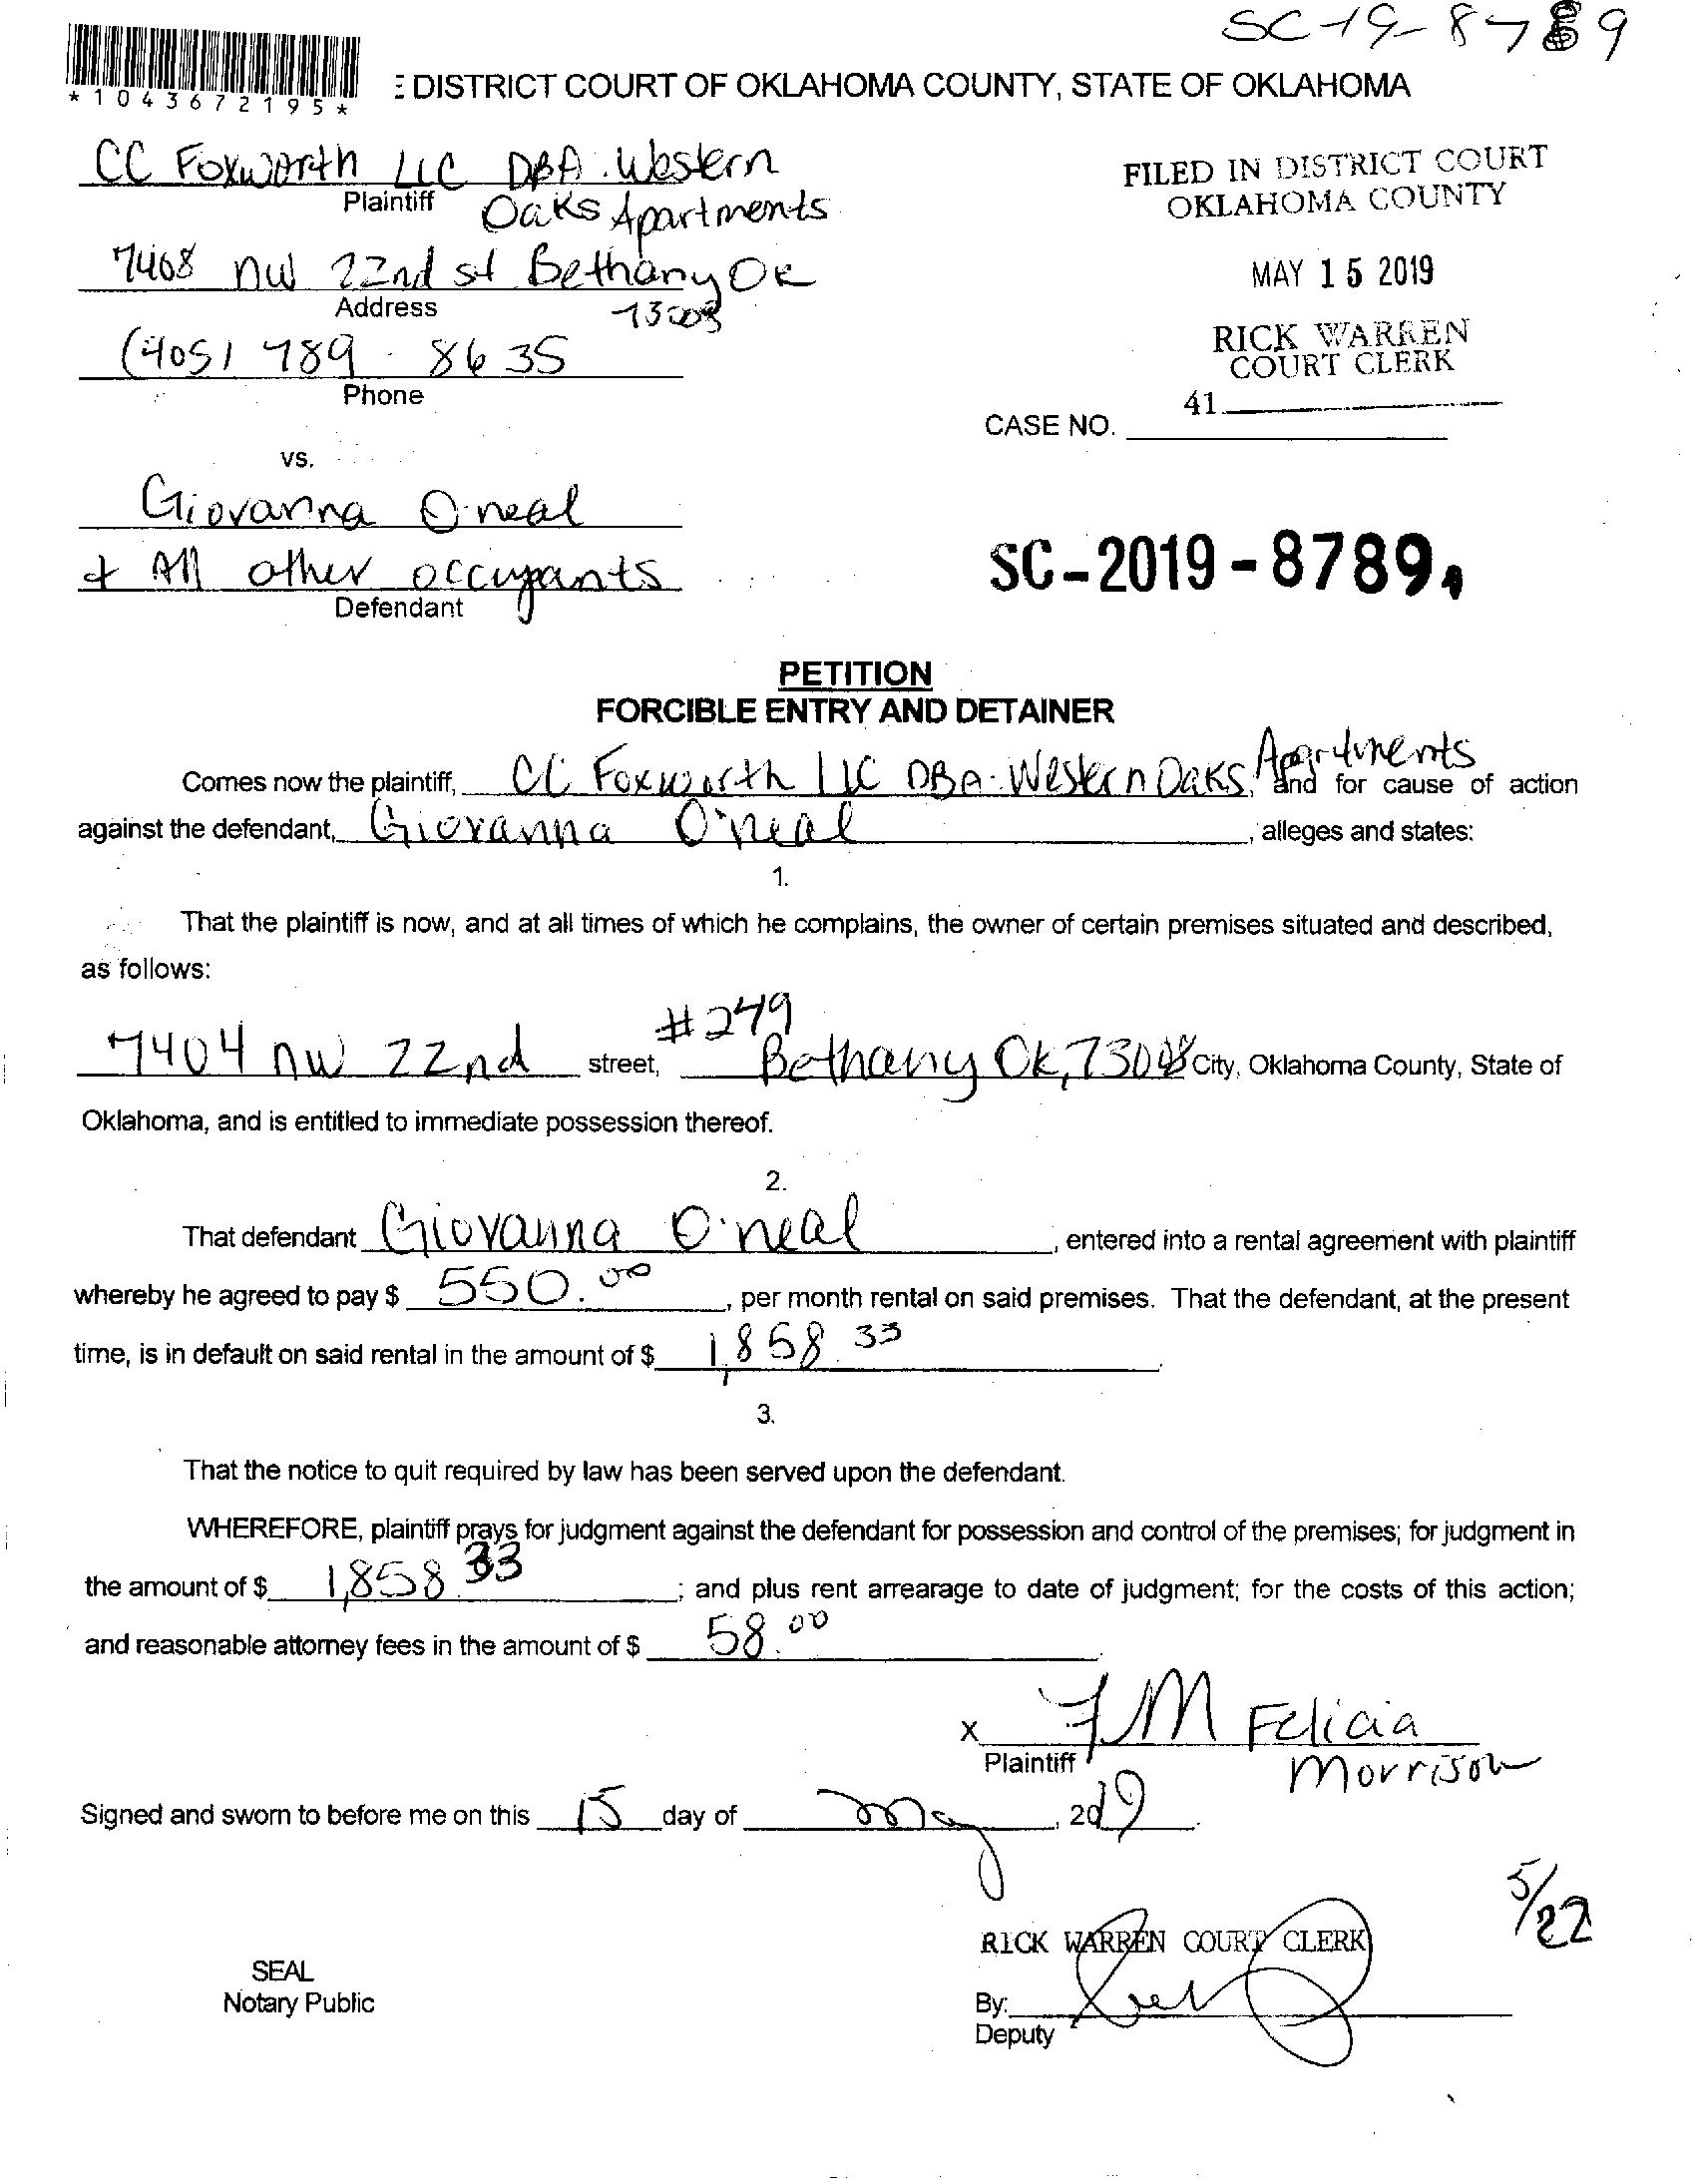 SC-19-8789
*1043672195*
E DISTRICT COURT OF OKLAHOMA COUNTY, STATE OF OKLAHOMA
CC Foxworth LLC DBA: Western
Plaintiff
Oaks Apartments
7408 NW 22nd st Bethany OK
Address
73008
(405) 789-8635
Phone
FILED IN DISTRICT COURT
OKLAHOMA COUNTY
MAY 15 2019
RICK WARREN
COURT CLERK
41
CASE NO.
vs.
Giovanna O'neal
+ All other occupants
Defendant
SC-2019-8789
PETITION
FORCIBLE ENTRY AND DETAINER
Comes now the plaintiff, CC Foxworth LLC DBA: Western Oaks Apartments, and for cause of action
against the defendant, Giovanna O'neal, alleges and states:
1.
That the plaintiff is now, and at all times of which he complains, the owner of certain premises situated and described,
as follows:
7404 NW 22nd street, #249 Bethany OK, 73008 City, Oklahoma County, State of
Oklahoma, and is entitled to immediate possession thereof.
2.
That defendant Giovanna O'neal, entered into a rental agreement with plaintiff
whereby he agreed to pay $ 550.00, per month rental on said premises. That the defendant, at the present
time, is in default on said rental in the amount of $ 1,858.33.
3.
That the notice to quit required by law has been served upon the defendant.
WHEREFORE, plaintiff prays for judgment against the defendant for possession and control of the premises; for judgment in
the amount of $ 1,858.33; and plus rent arrearage to date of judgment; for the costs of this action;
and reasonable attorney fees in the amount of $ 58.00.
X FM Felicia
Plaintiff Morrison
Signed and sworn to before me on this 15 day of May, 2019.
5/22
RICK WARREN COURT CLERK
SEAL
Notary Public
By:
Deputy